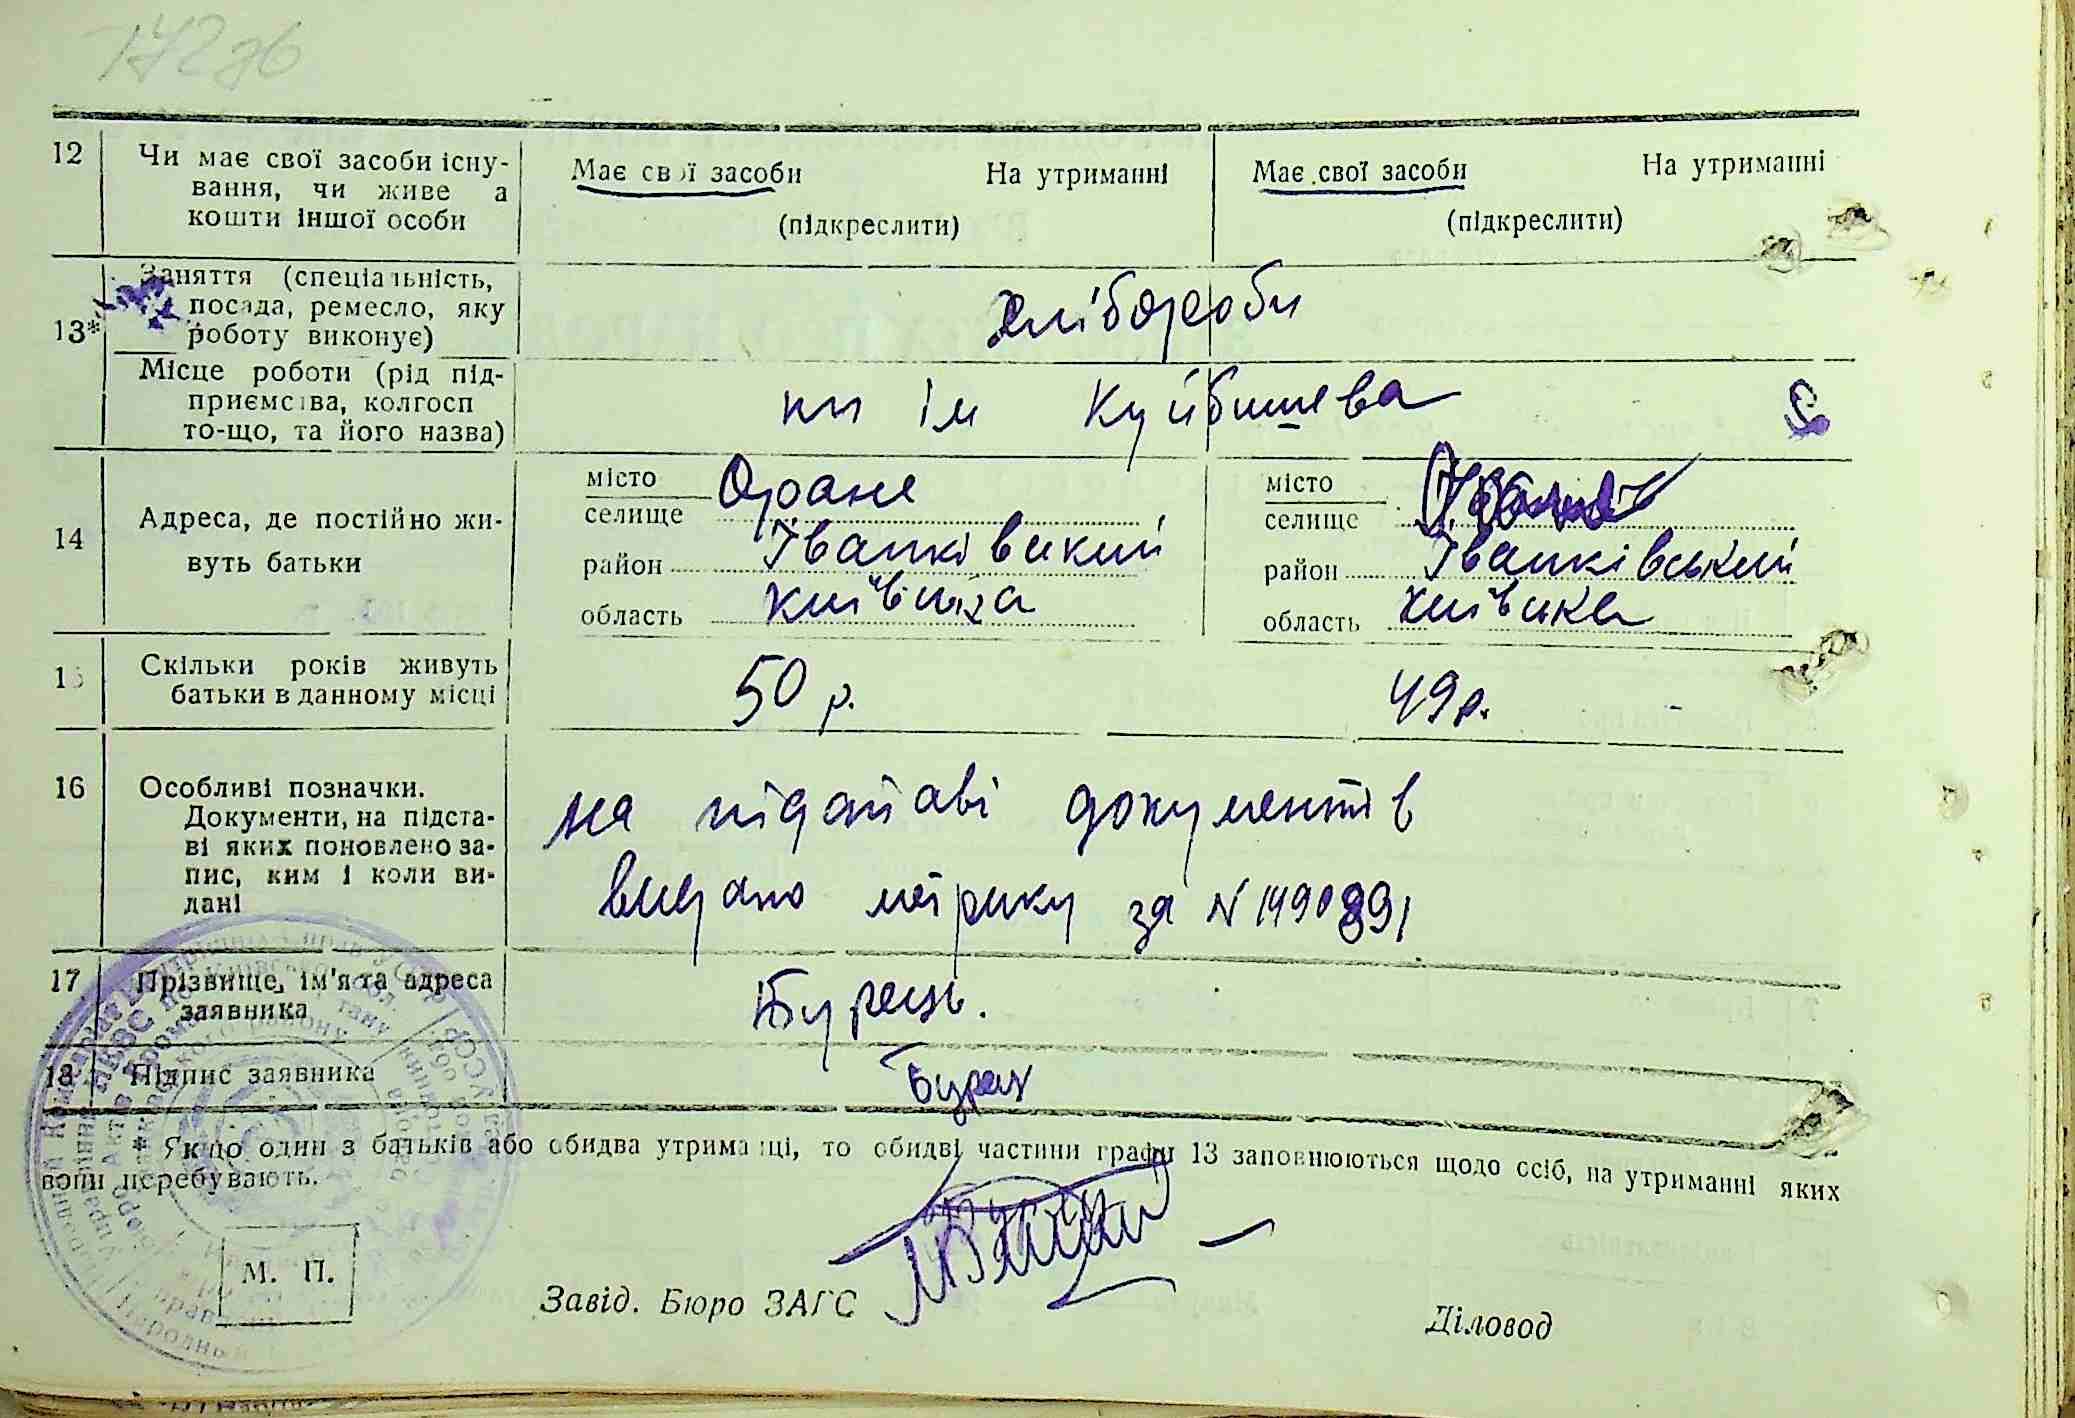 172 зв
12 Чи має свої засоби існу-
вання, чи живе а
кошти іншої особи
Має свої засоби На утриманні
(підкреслити)
Має свої засоби На утриманні
(підкреслити)
13* Заняття (спеціальність,
посада, ремесло, яку
роботу виконує)
хлібороби
Місце роботи (рід під-
приємства, колгосп
то-що, та його назва)
ім Куйбишева
14 Адреса, де постійно жи-
вуть батьки
місто
селище Оране
район Іванківський
область Київська
місто
селище
район Іванківський
область Київська
15 Скільки років живуть
батьки в данному місці
50 р. 49 р.
16 Особливі позначки.
Документи, на підста-
ві яких поновлено за-
пис, ким і коли ви-
дані
на підставі документів
видано метрику за N 1490891
17 Прізвище, ім'я та адреса
заявника
Бурець.
18 Підпис заявника
* Якщо один з батьків або обидва утриманці, то обидві частини графи 13 заповнюються щодо осіб, на утриманні яких
вони перебувають.
М. П.
Завід. Бюро ЗАГС
Діловод